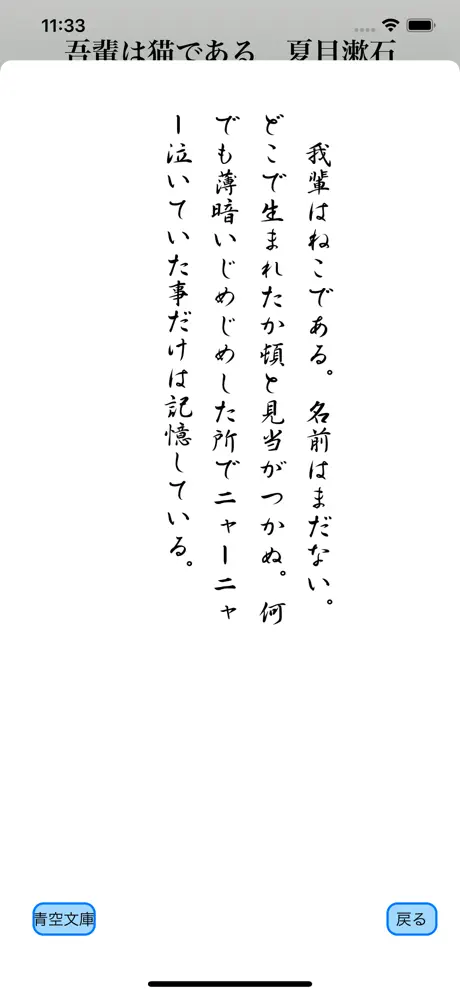 11:33
吾輩は猫である　夏目漱石
我輩はねこである。名前はまだない。
どこで生まれたか頓と見当がつかぬ。何
でも薄暗いじめじめした所でニャーニャ
ー泣いていた事だけは記憶している。
青空文庫
戻る